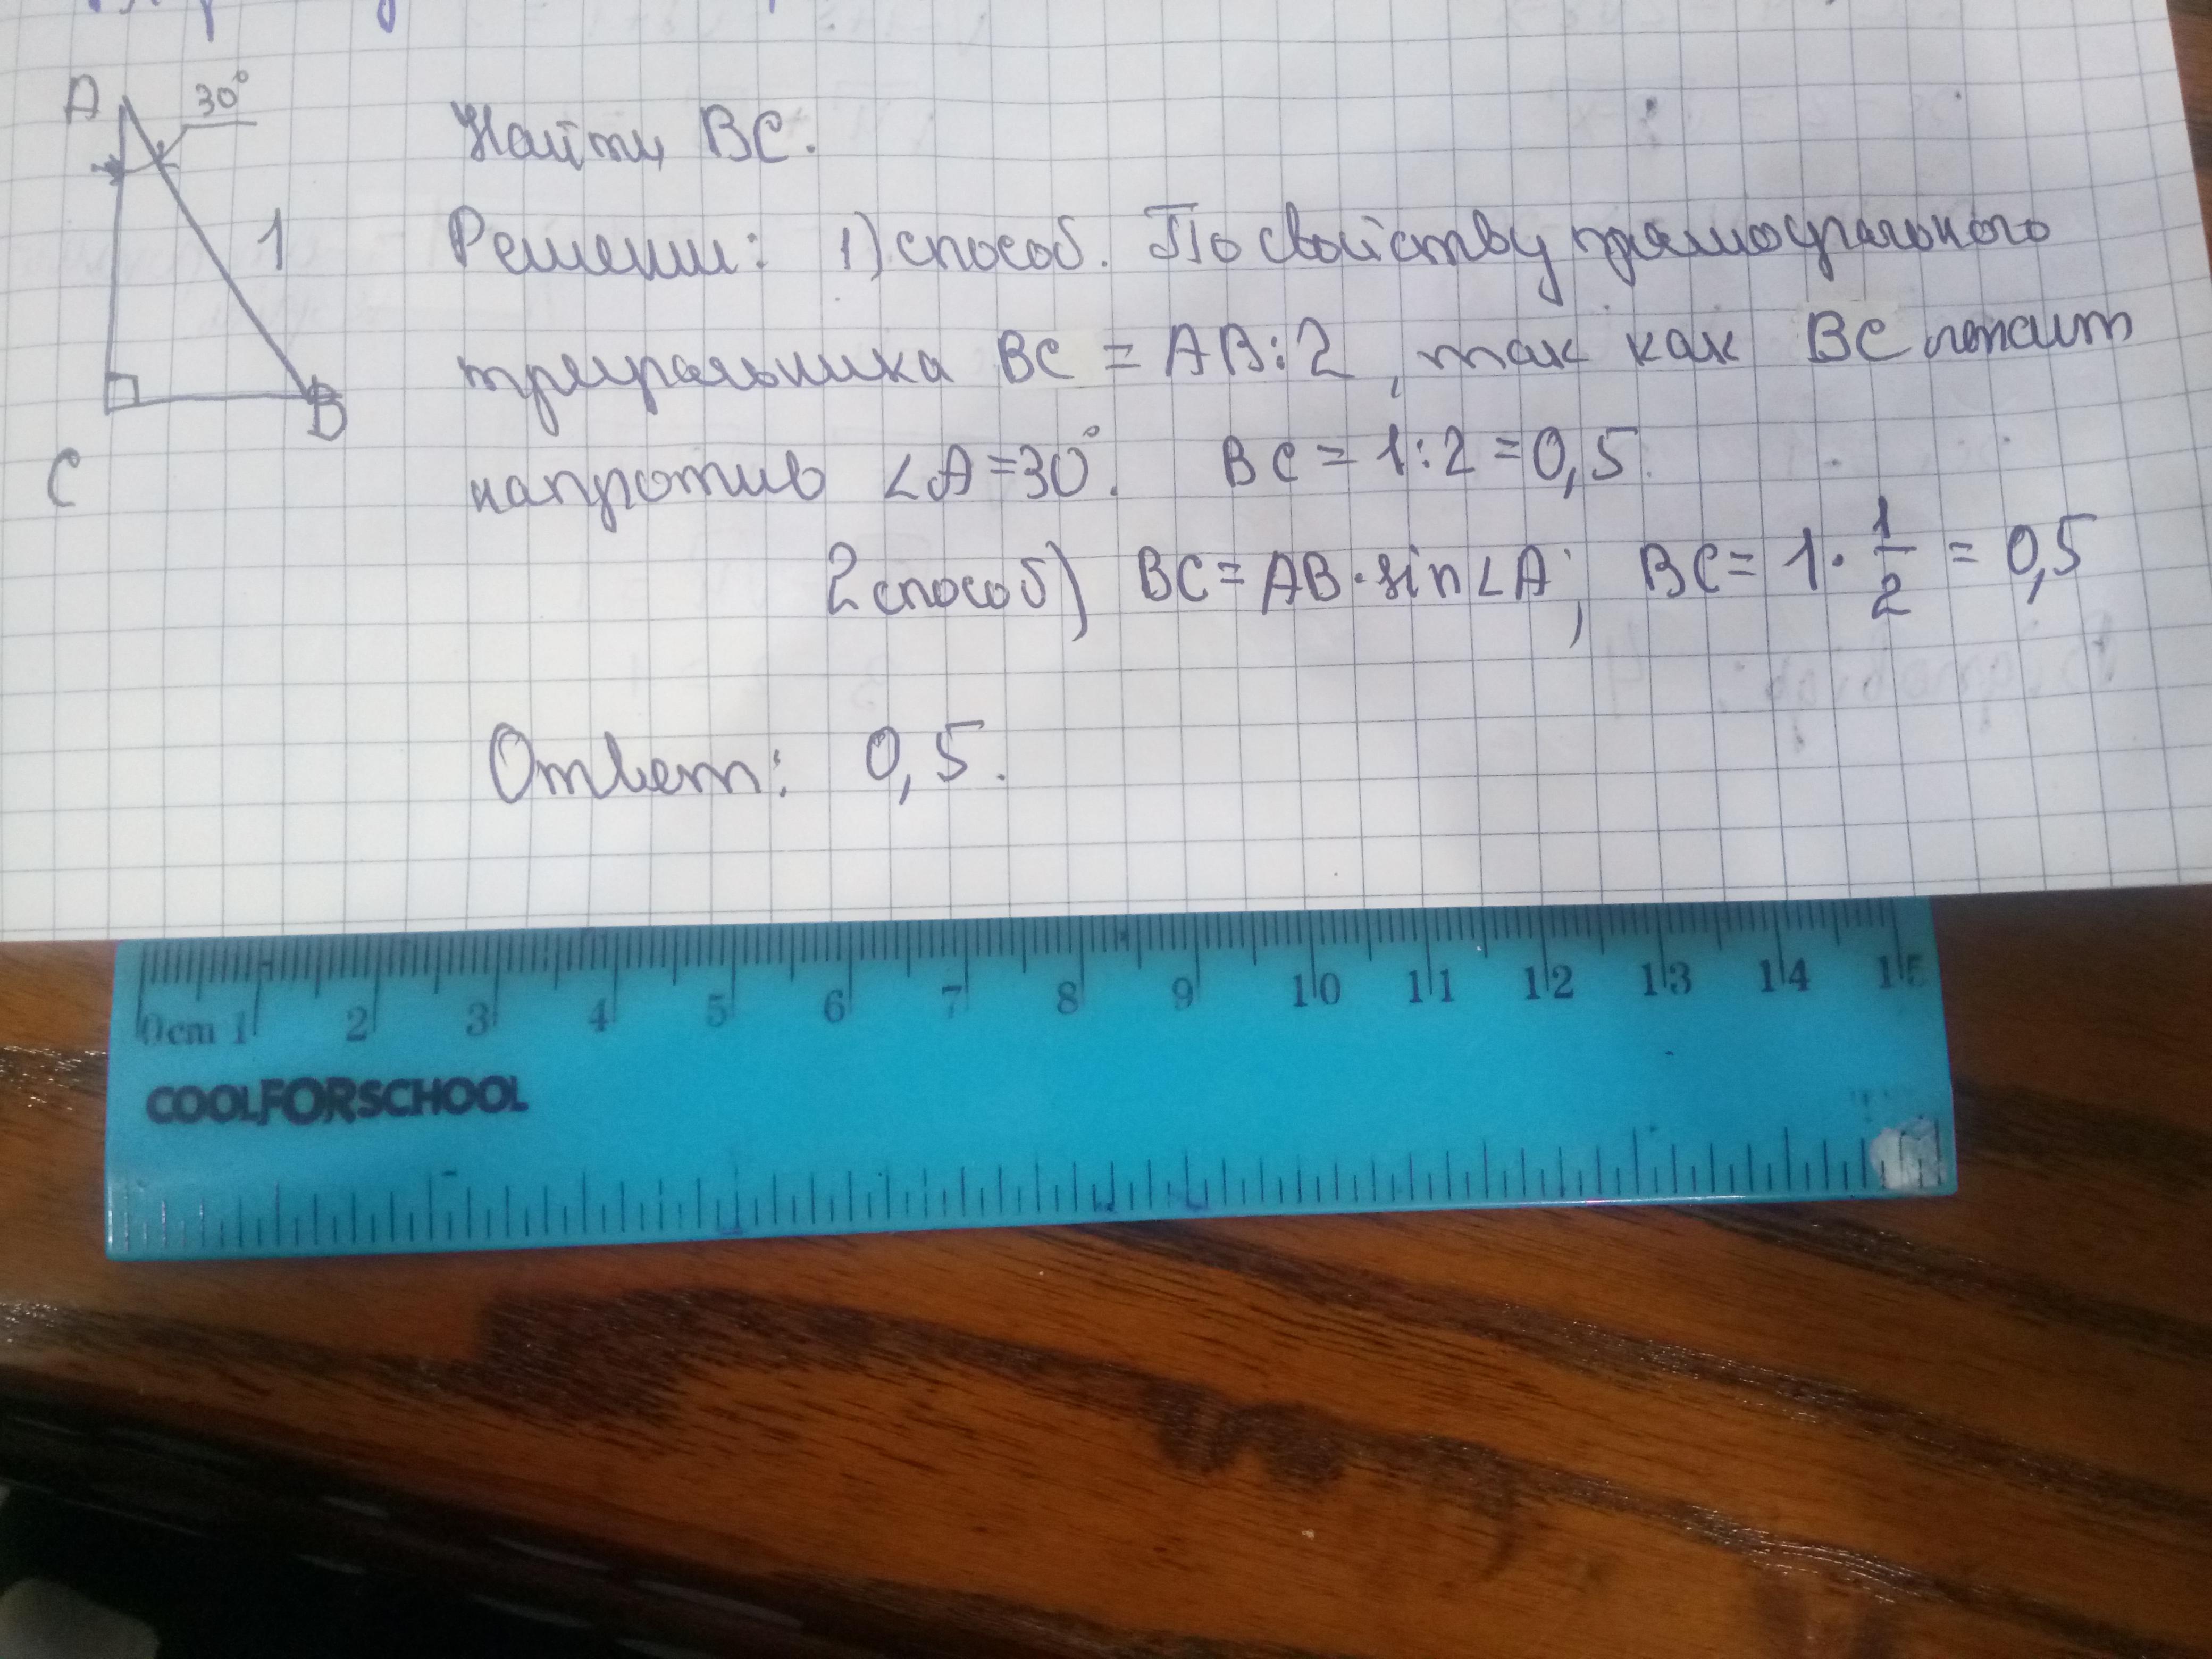 A 30°
1
B
C
Найти BC.
Решении: 1) способ. По свойству прямоугольного
треугольника BC = AB:2, так как BC лежит
напротив ∠A=30°. BC = 1:2=0,5.
2 способ) BC = AB · sin∠A; BC = 1 · 1/2 = 0,5
Ответ: 0,5.
0cm 1 2 3 4 5 6 7 8 9 10 11 12 13 14 15
COOLFORSCHOOL